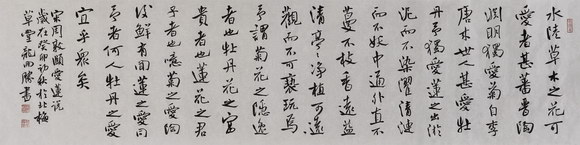 水陸草木之花可
愛者甚蕃晋陶
渊明獨愛菊自李
唐来世人甚愛牡
丹予獨愛蓮之出淤
泥而不染濯清漣
而不妖中通外直不
蔓不枝香遠益
清亭亭净植可遠
觀而不可褻玩焉
予謂菊花之隐逸
者也牡丹花之富
貴者也蓮花之君
子者也噫菊之愛陶
後鮮有聞蓮之愛同
予者何人牡丹之愛
宜乎衆矣
宋周敦頤愛蓮説
歲在癸卯初秋於北
草堂龍 勝書